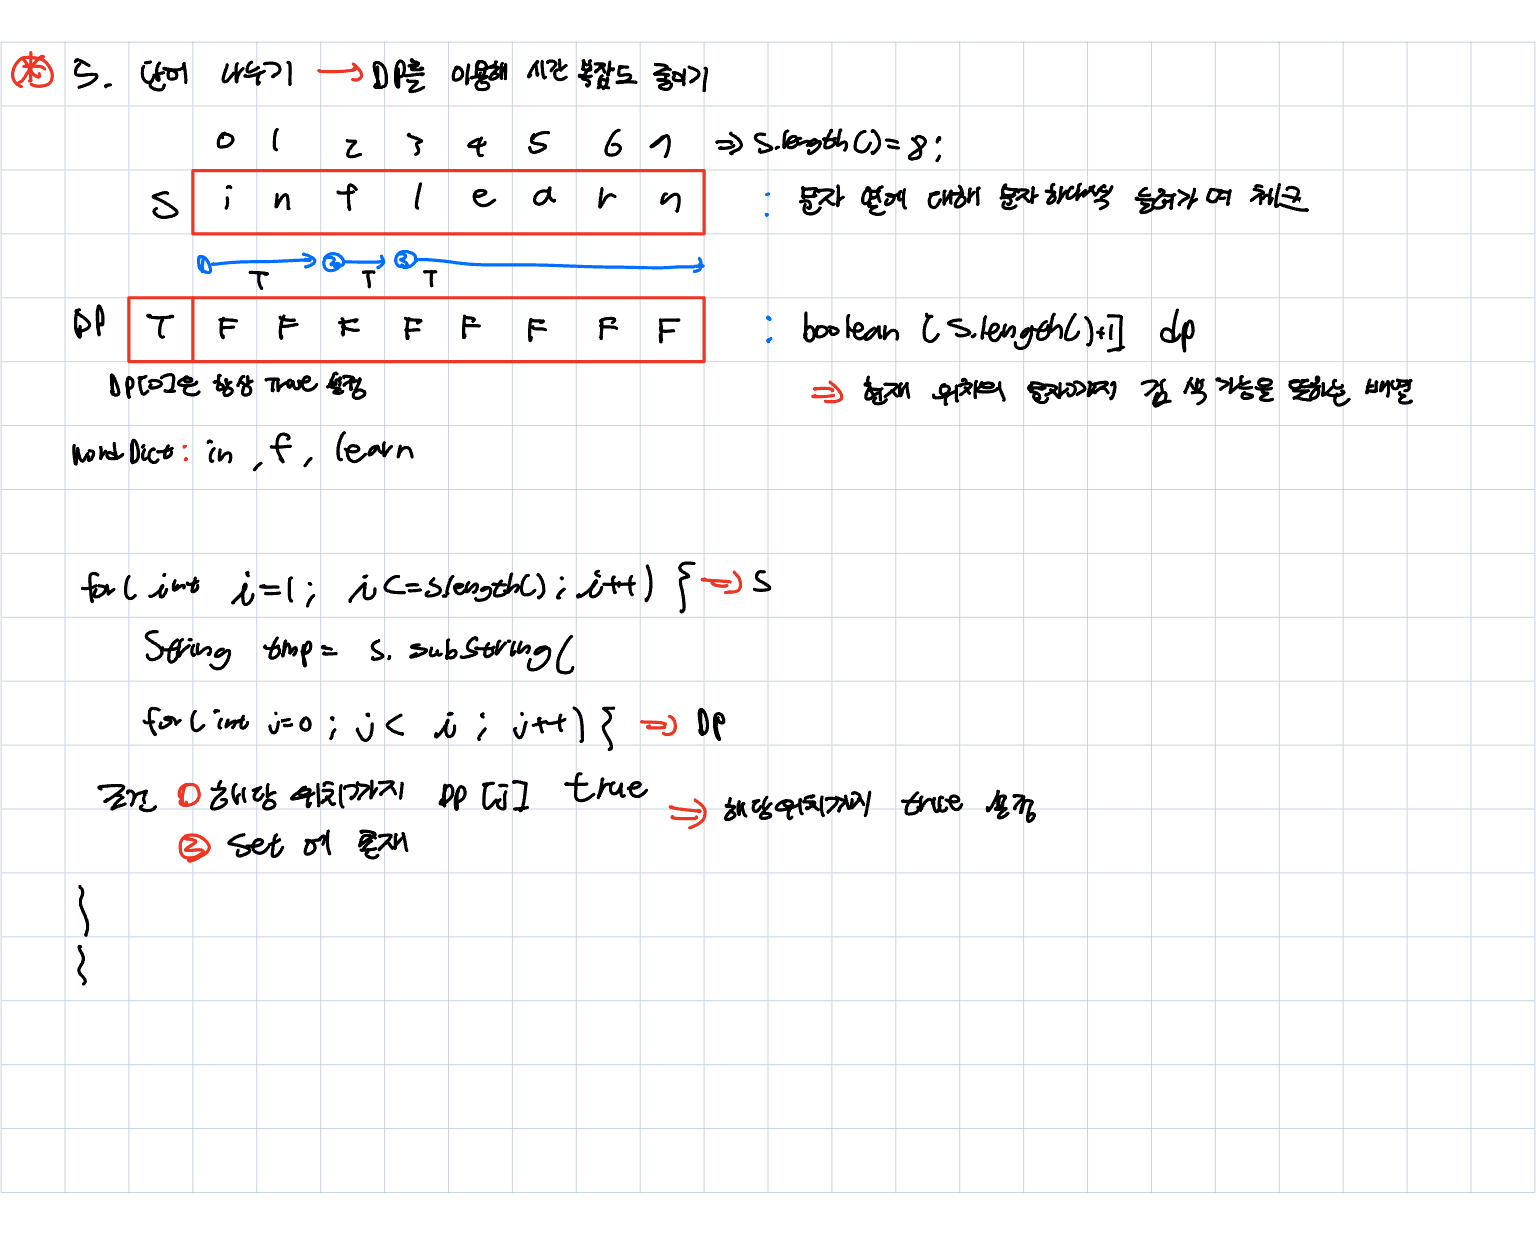 5. 단어 나누기 → DP를 이용해 시간 복잡도 줄이기
0 1 2 3 4 5 6 7 ⇒ S.length()=8;
S i n f l e a r n : 문자 열에 대해 문자 하나씩 늘려가며 체크
① ② ③
T T T
DP T F F F F F F F F : boolean [S.length()+1] dp
DP[0]은 항상 True 설정 ⇒ 현재 위치의 문자까지 검색 가능을 뜻하는 배열
wordDict: in, f, learn
for( int i=1; i<=s.length(); i++) { ⇒ S
String tmp = s.substring(
for( int j=0; j< i; j++) { ⇒ DP
조건 ① 해당 위치까지 DP[j] true ⇒ 해당위치까지 true 설정
② Set에 존재
}
}